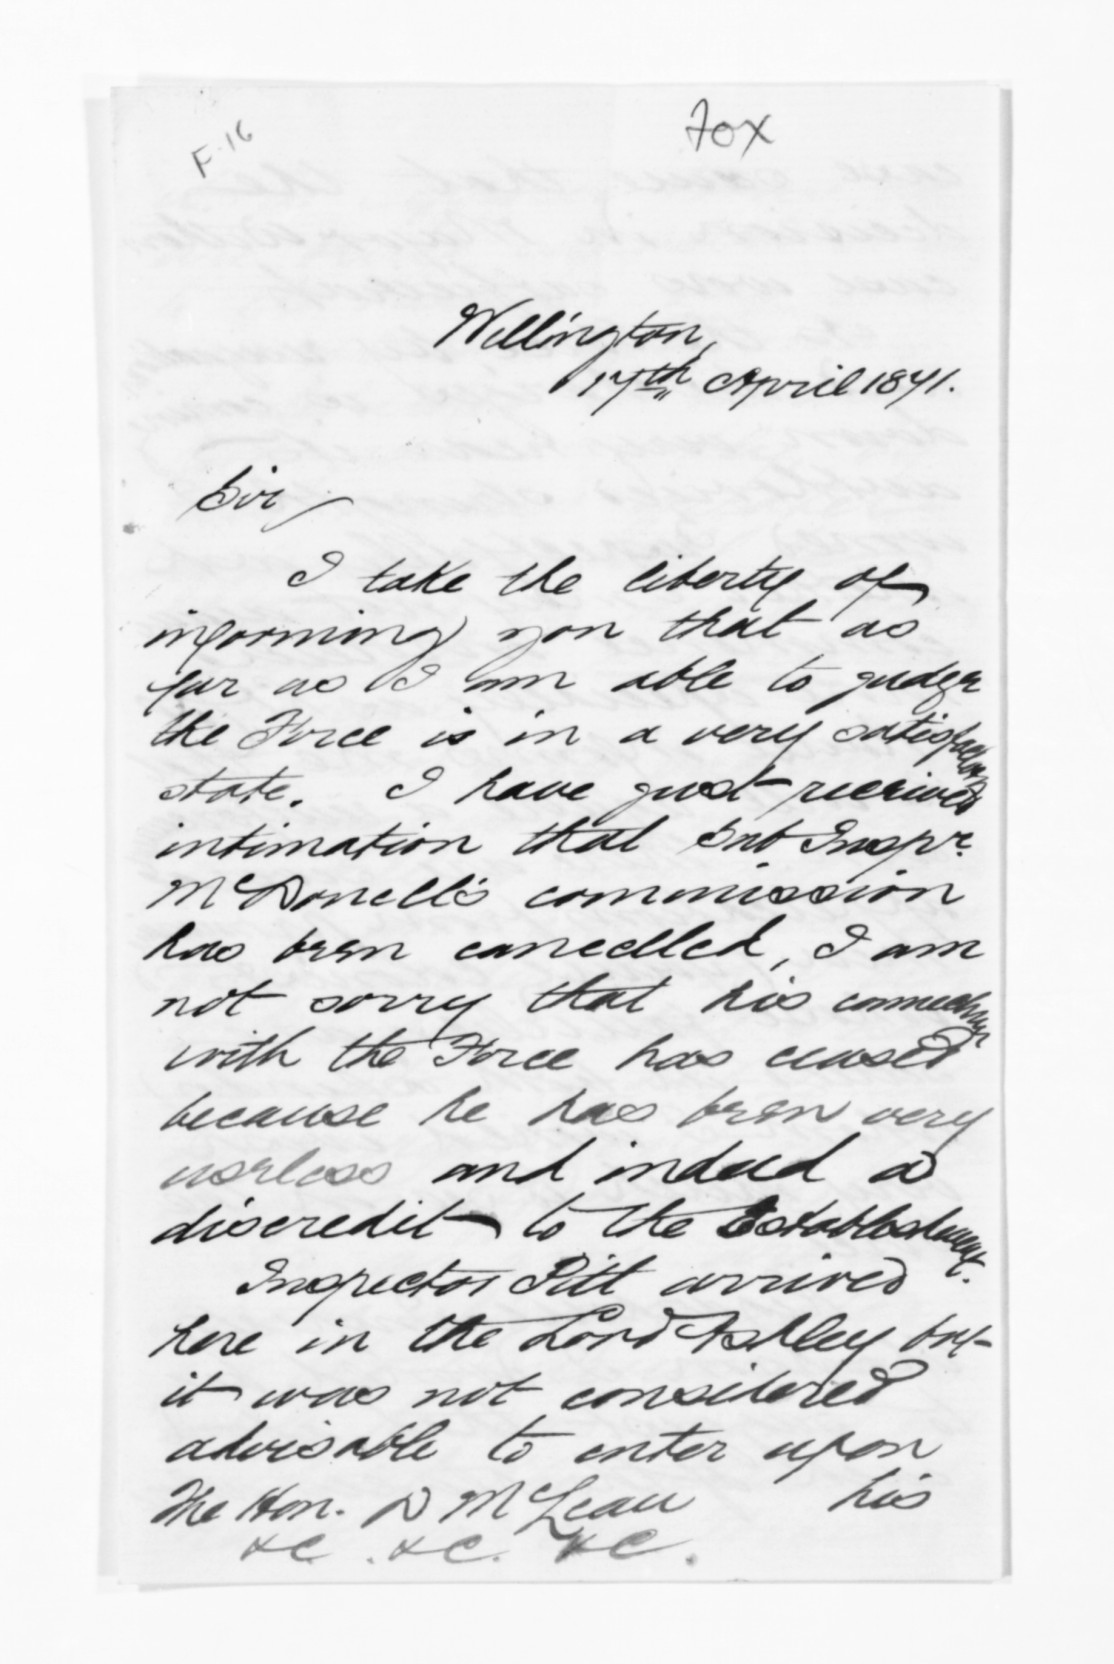 F. 16
Fox
Wellington,
17th April 1871.
Sir,
I take the liberty of
informing you that as
far as I am able to judge
the Force is in a very satisfactory
state. I have just received
intimation that Sub Inspr.
McDonell's commission
has been cancelled, I am
not sorry that his connection
with the Force has ceased
because he has been very
useless and indeed a
discredit to the Establishment.
Inspector Pitt arrived
here in the Lord Ashley but
it was not considered
advisable to enter upon
The Hon. D McLean his
&c. &c. &c.